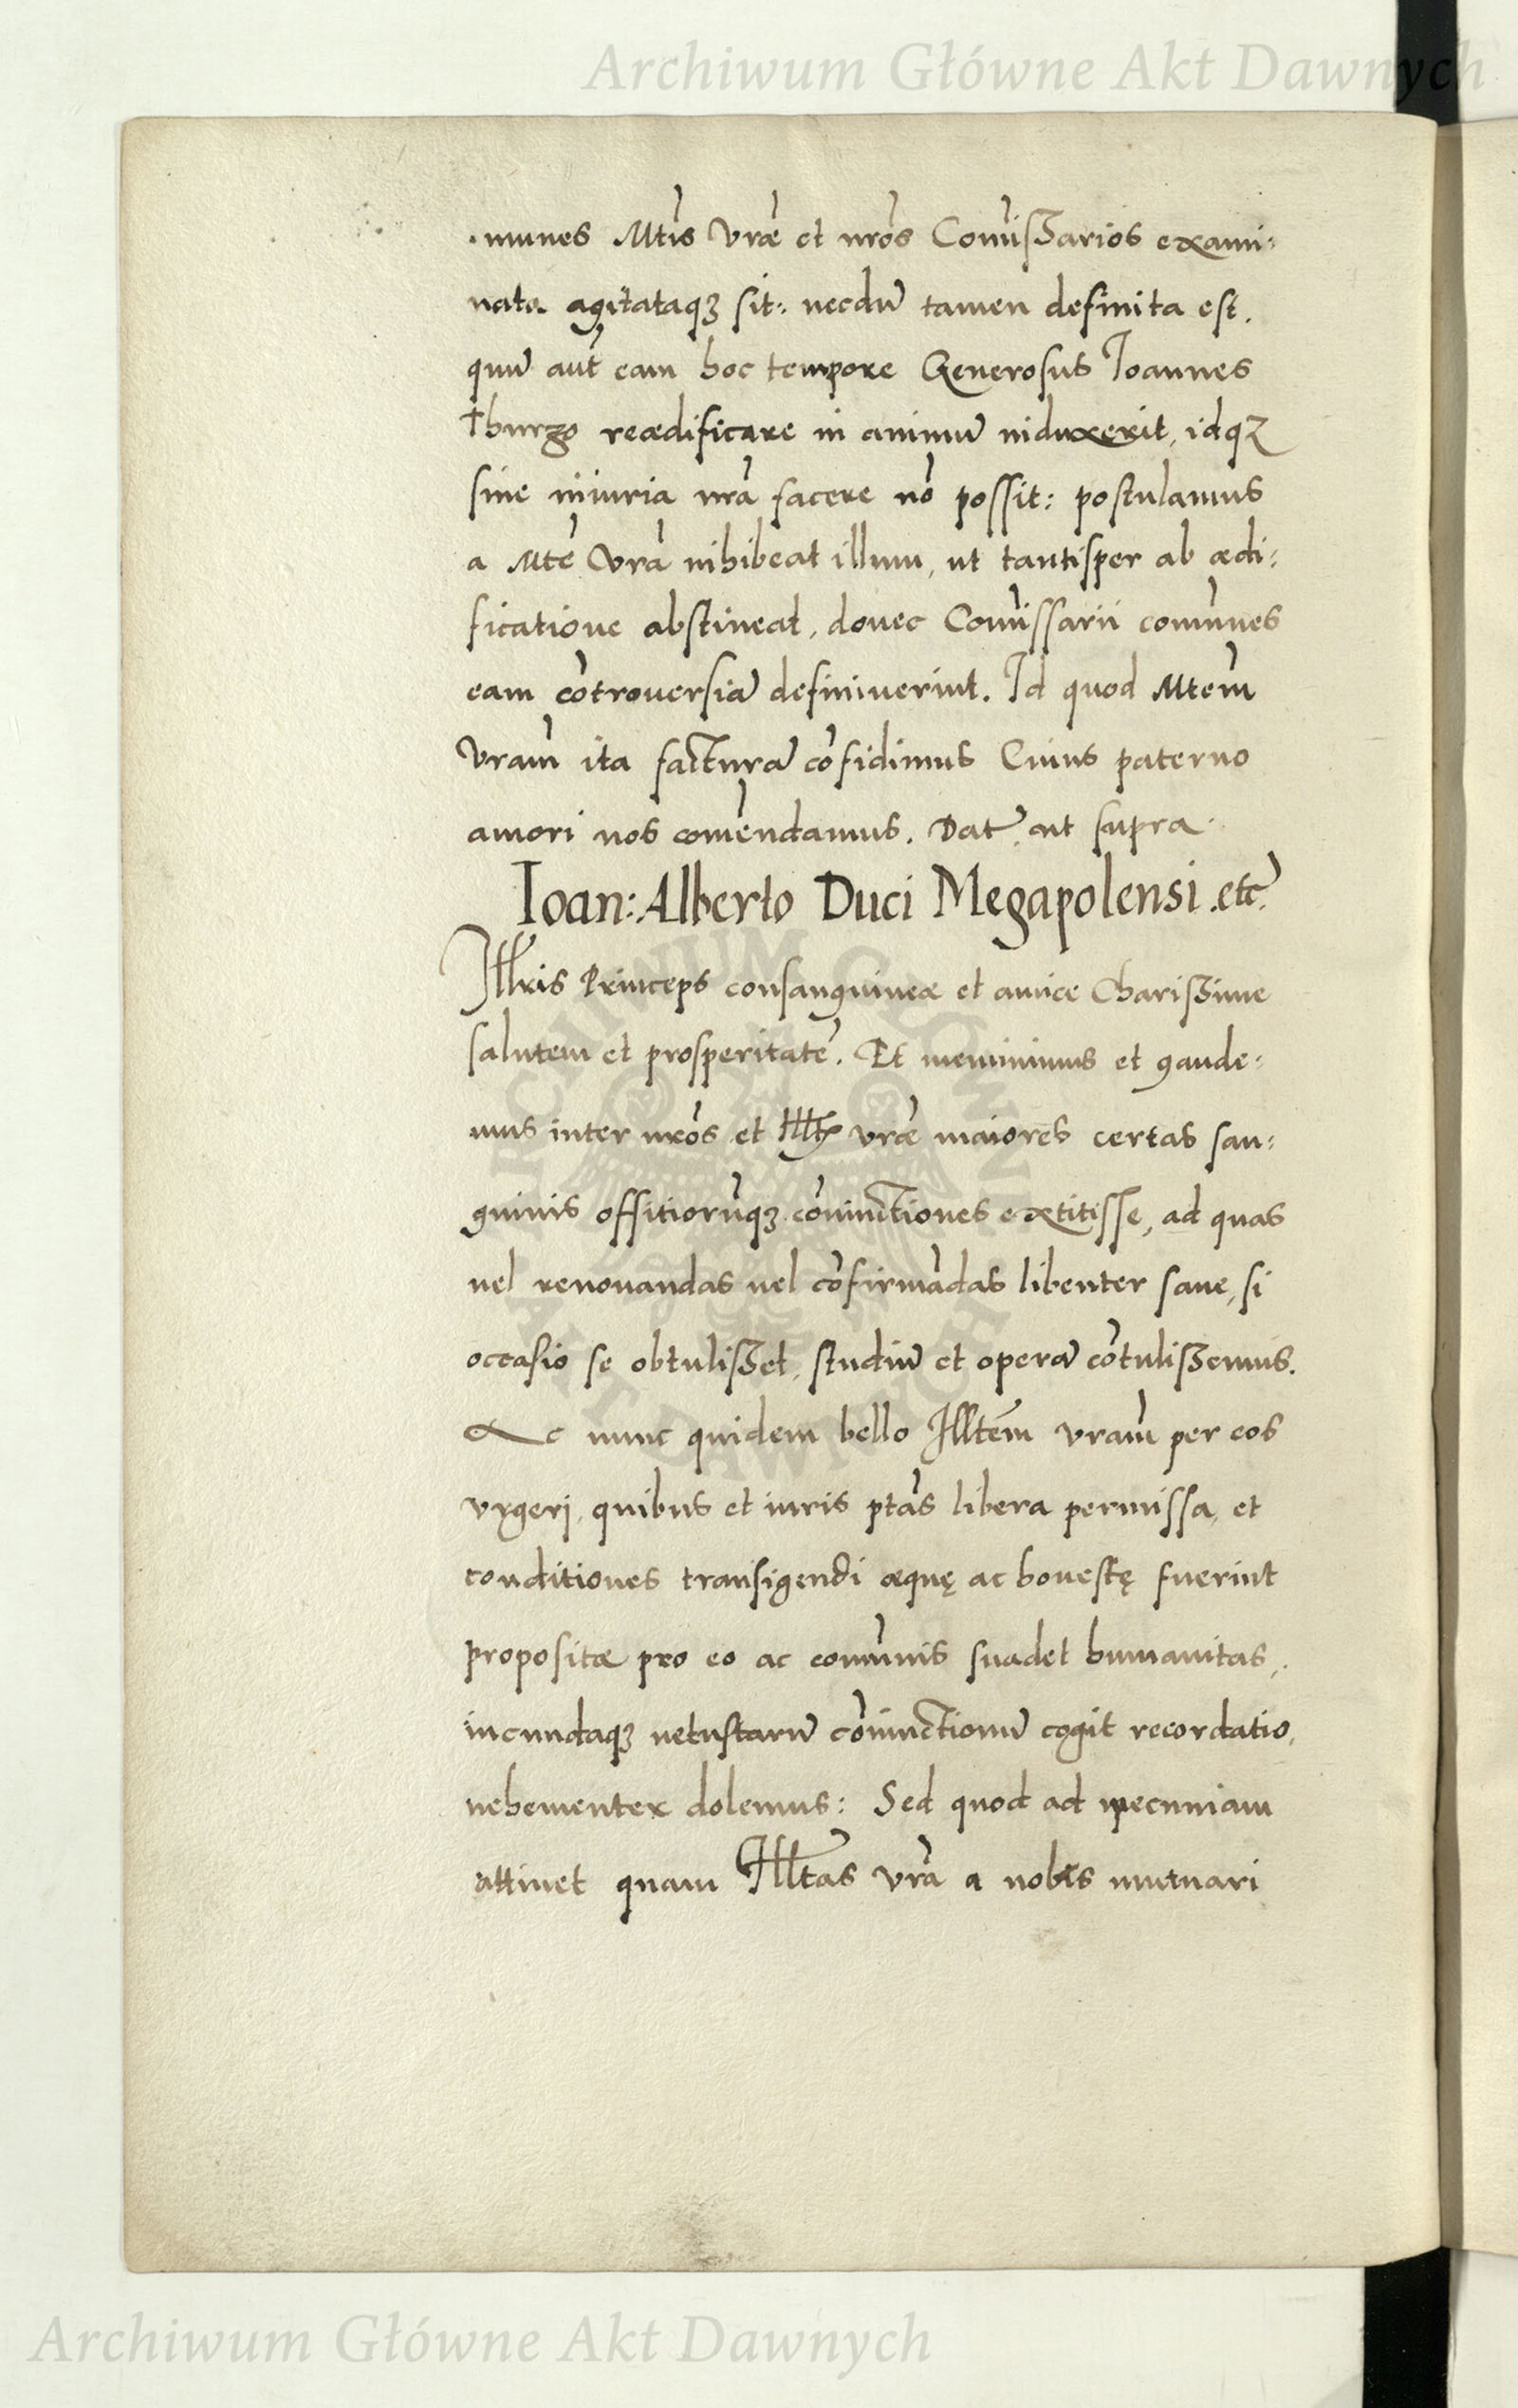 Archiwum Główne Akt Dawnych
munes Mtis Vræ et nros Comissarios exami:
nata agitataqz sit: necdu tamen definita est.
quu aut eam hoc tempore Generosus Joannes
Thurzo reædificare in animu induxerit, idqz
sine iniuria nra facere no possit: postulamus
a Mte Vra inhibeat illum, ut tantisper ab ædi:
ficatione abstineat, donec Comissarii comunes
eam cotrouersia definiuerint. Id quod Mtem
Vram ita factura cofidimus Cuius paterno
amori nos comendamus. Dat ut supra.
Ioan: Alberto Duci Megapolensi .etc.
Illris Princeps consanguineæ et amice Charissime
salutem et prosperitate. Et meminimus et gaude:
mus inter nros et Illtis vræ maiores certas san:
guinis offitioruqz coniunctiones extitisse, ad quas
uel renouandas uel cofirmadas libenter sane, si
occasio se obtulisset, studiu et opera cotulissemus.
Ac nunc quidem bello Illtem vram per eos
vrgerj, quibus et iuris ptas libera permissa, et
conditiones transigendi æquę ac honestę fuerint
propositæ pro eo ac comunis suadet humanitas,
iucundaqz uetustaru coniunctionu cogit recordatio,
uehementer dolemus: Sed quod ad pecuniam
attinet quam Illtas vra a nobis mutuari
Archiwum Główne Akt Dawnych